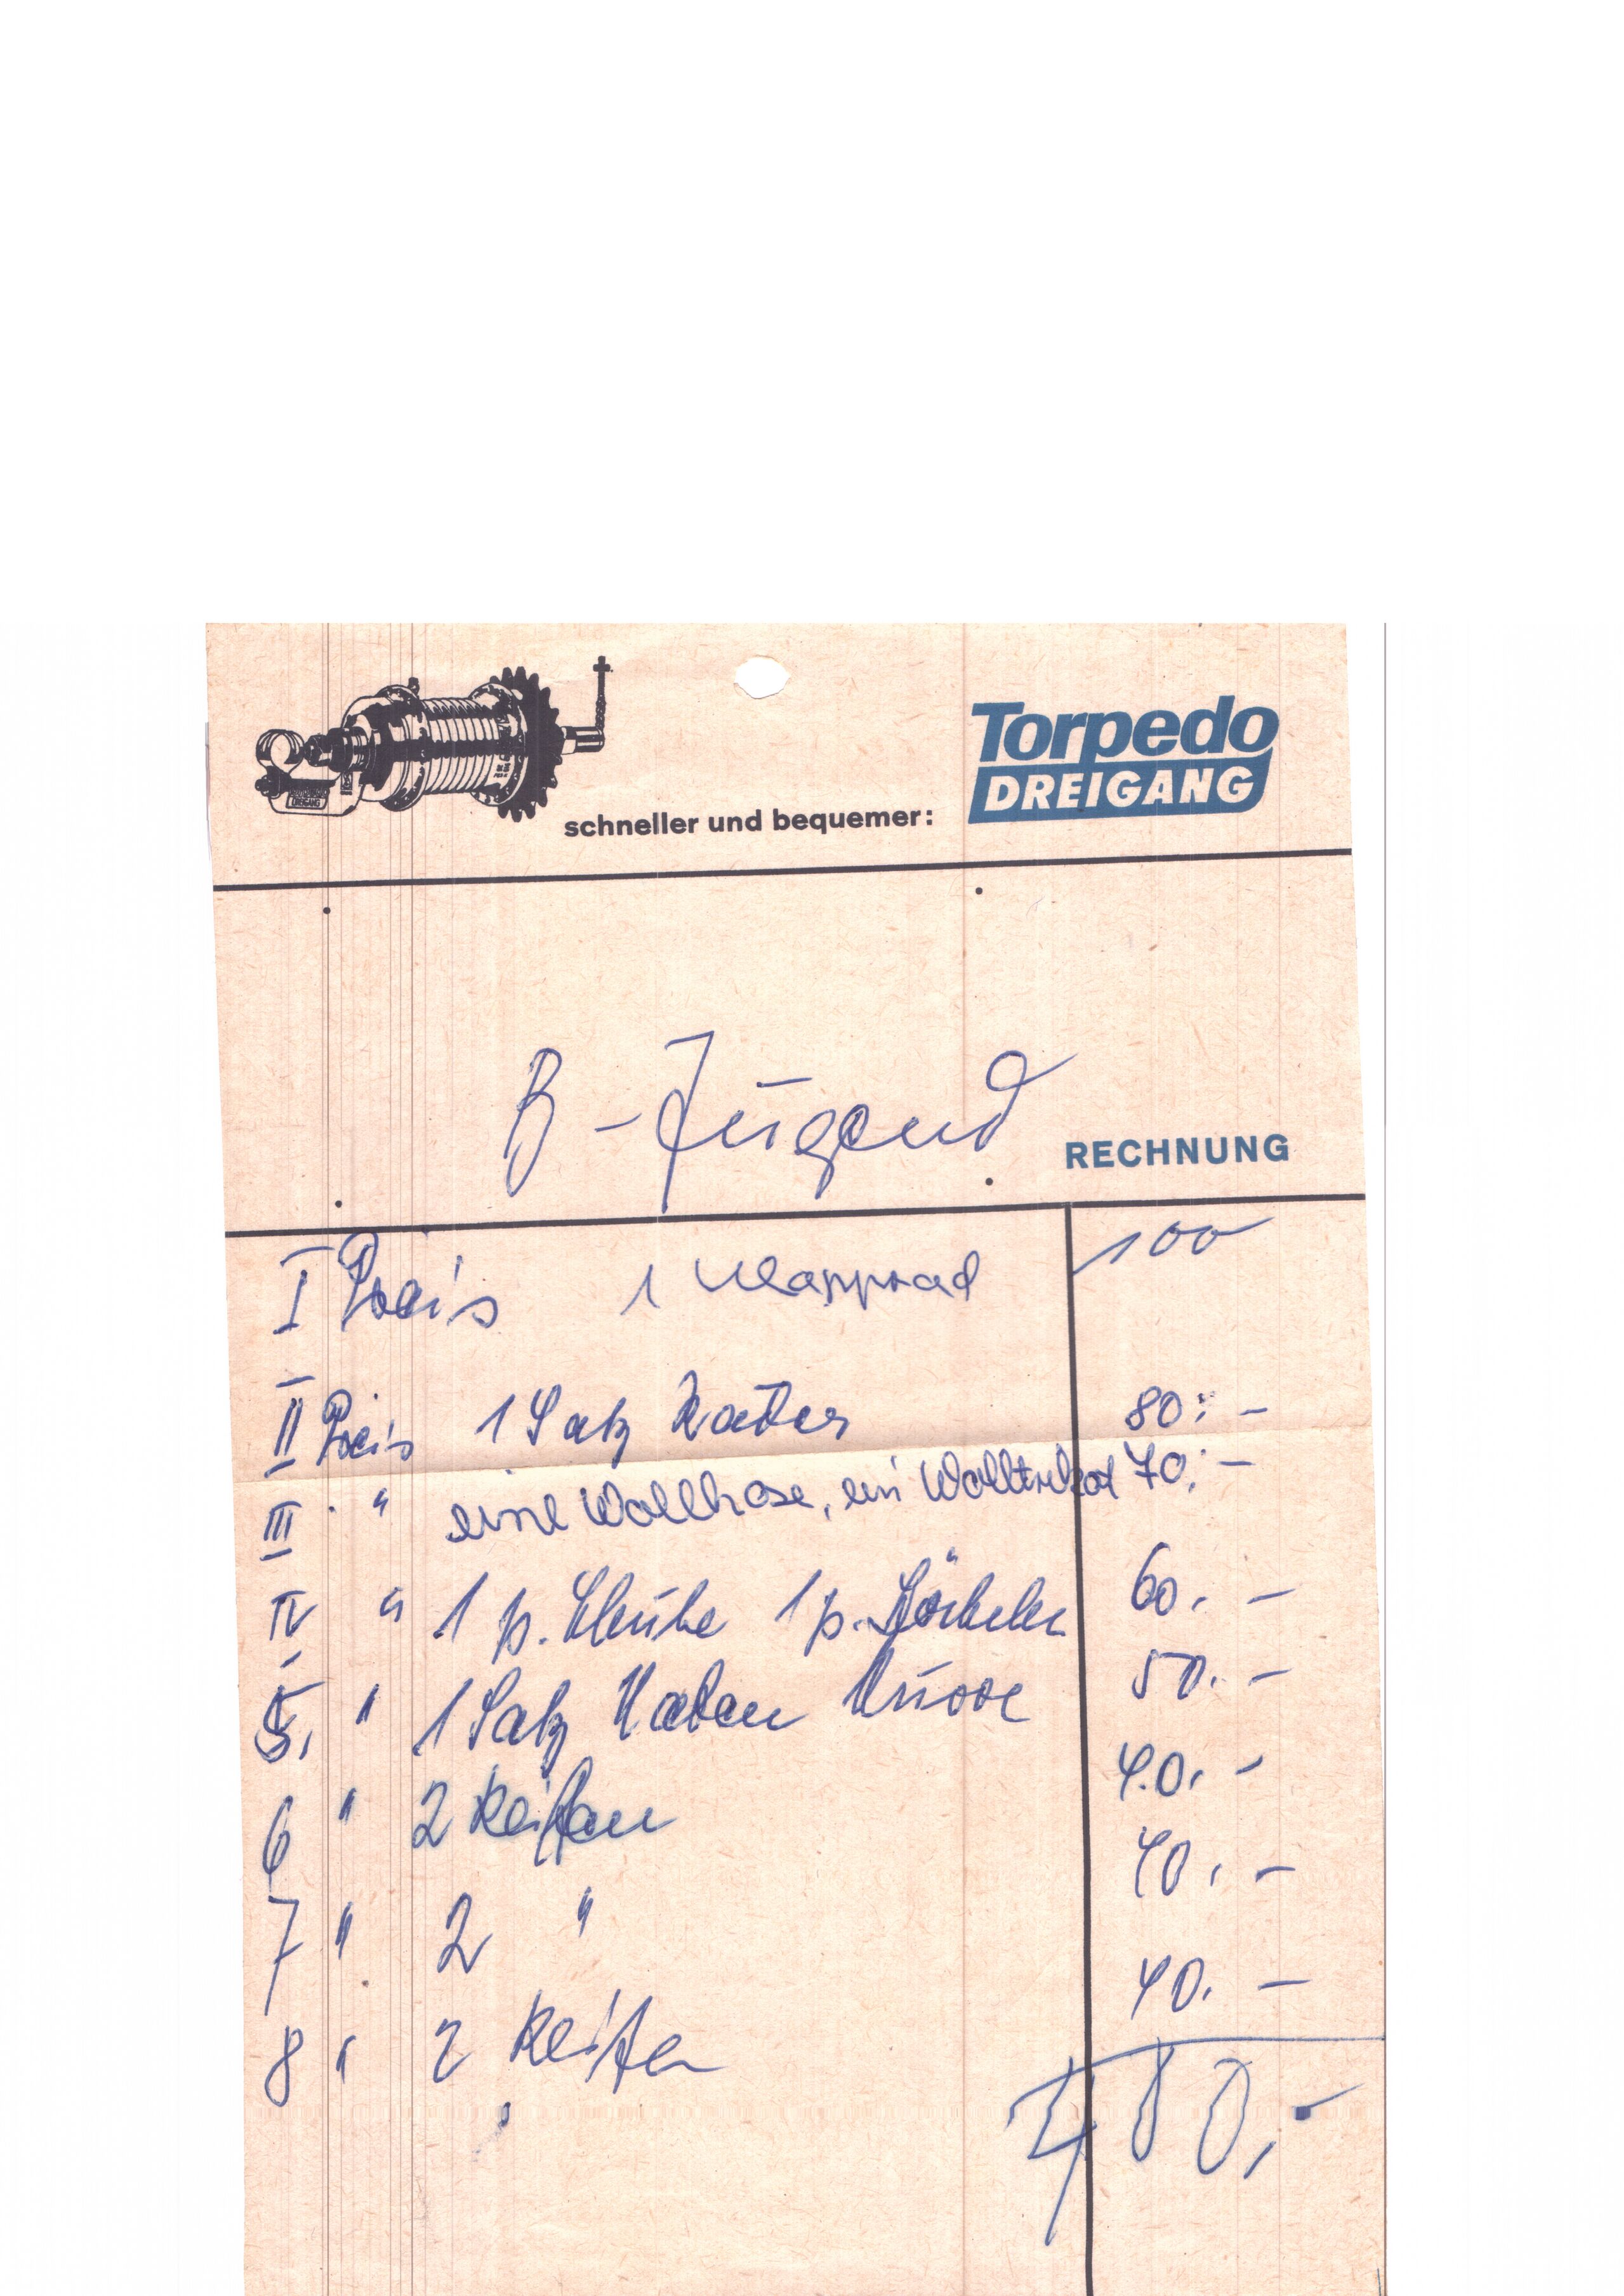 Torpedo
DREIGANG
schneller und bequemer:
B - Jugend
RECHNUNG
I Preis 1 Klapprad 100
II Preis 1 Satz Räder 80.-
III " eine Wollhose, ein Wolltrikot 70.-
IV " 1 p. Schuhe 1 p. 60.-
5. " 1 Satz Naben 50.-
6 " 2 Reifen 40.-
7 " 2 " 40.-
8 " 2 Reifen 40.-
480,-